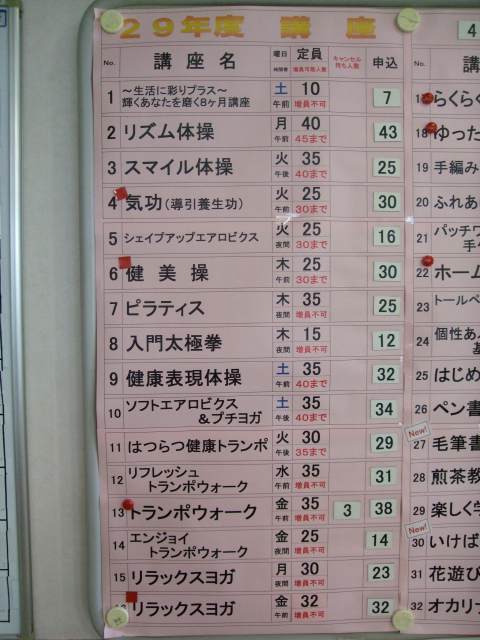 29年度 講 座
No. 講座名 曜日 時間帯 定員 増員可能人数 キャンセル待ち人数 申込
1 ～生活に彩りプラス～ 輝くあなたを磨く8ヶ月講座 土 午前 10 増員不可 7
2 リズム体操 月 午前 40 45まで 43
3 スマイル体操 火 午後 35 40まで 25
4 気功(導引養生功) 火 午前 25 30まで 30
5 シェイプアップエアロビクス 火 夜間 25 30まで 16
6 健美操 木 午前 25 30まで 30
7 ピラティス 木 夜間 35 増員不可 25
8 入門太極拳 木 夜間 15 増員不可 12
9 健康表現体操 土 午前 35 40まで 32
10 ソフトエアロビクス &プチヨガ 土 午後 35 40まで 34
11 はつらつ健康トランポ 火 午後 30 35まで 29
12 リフレッシュ トランポウォーク 水 午前 35 増員不可 31
13 トランポウォーク 金 午前 35 増員不可 3 38
14 エンジョイ トランポウォーク 金 夜間 25 増員不可 14
15 リラックスヨガ 月 夜間 30 増員不可 23
リラックスヨガ 金 午前 32 増員不可 32
4
No. 講
らくらく
18 ゆった
19 手編み
20 ふれあ
21 パッチワ
22 ホーム
23 トールペ
24 個性あ
25 はじめ
26 ペン書
New!
27 毛筆書
28 煎茶教
29 楽しく学
New!
30 いけば
31 花遊び
32 オカリナ